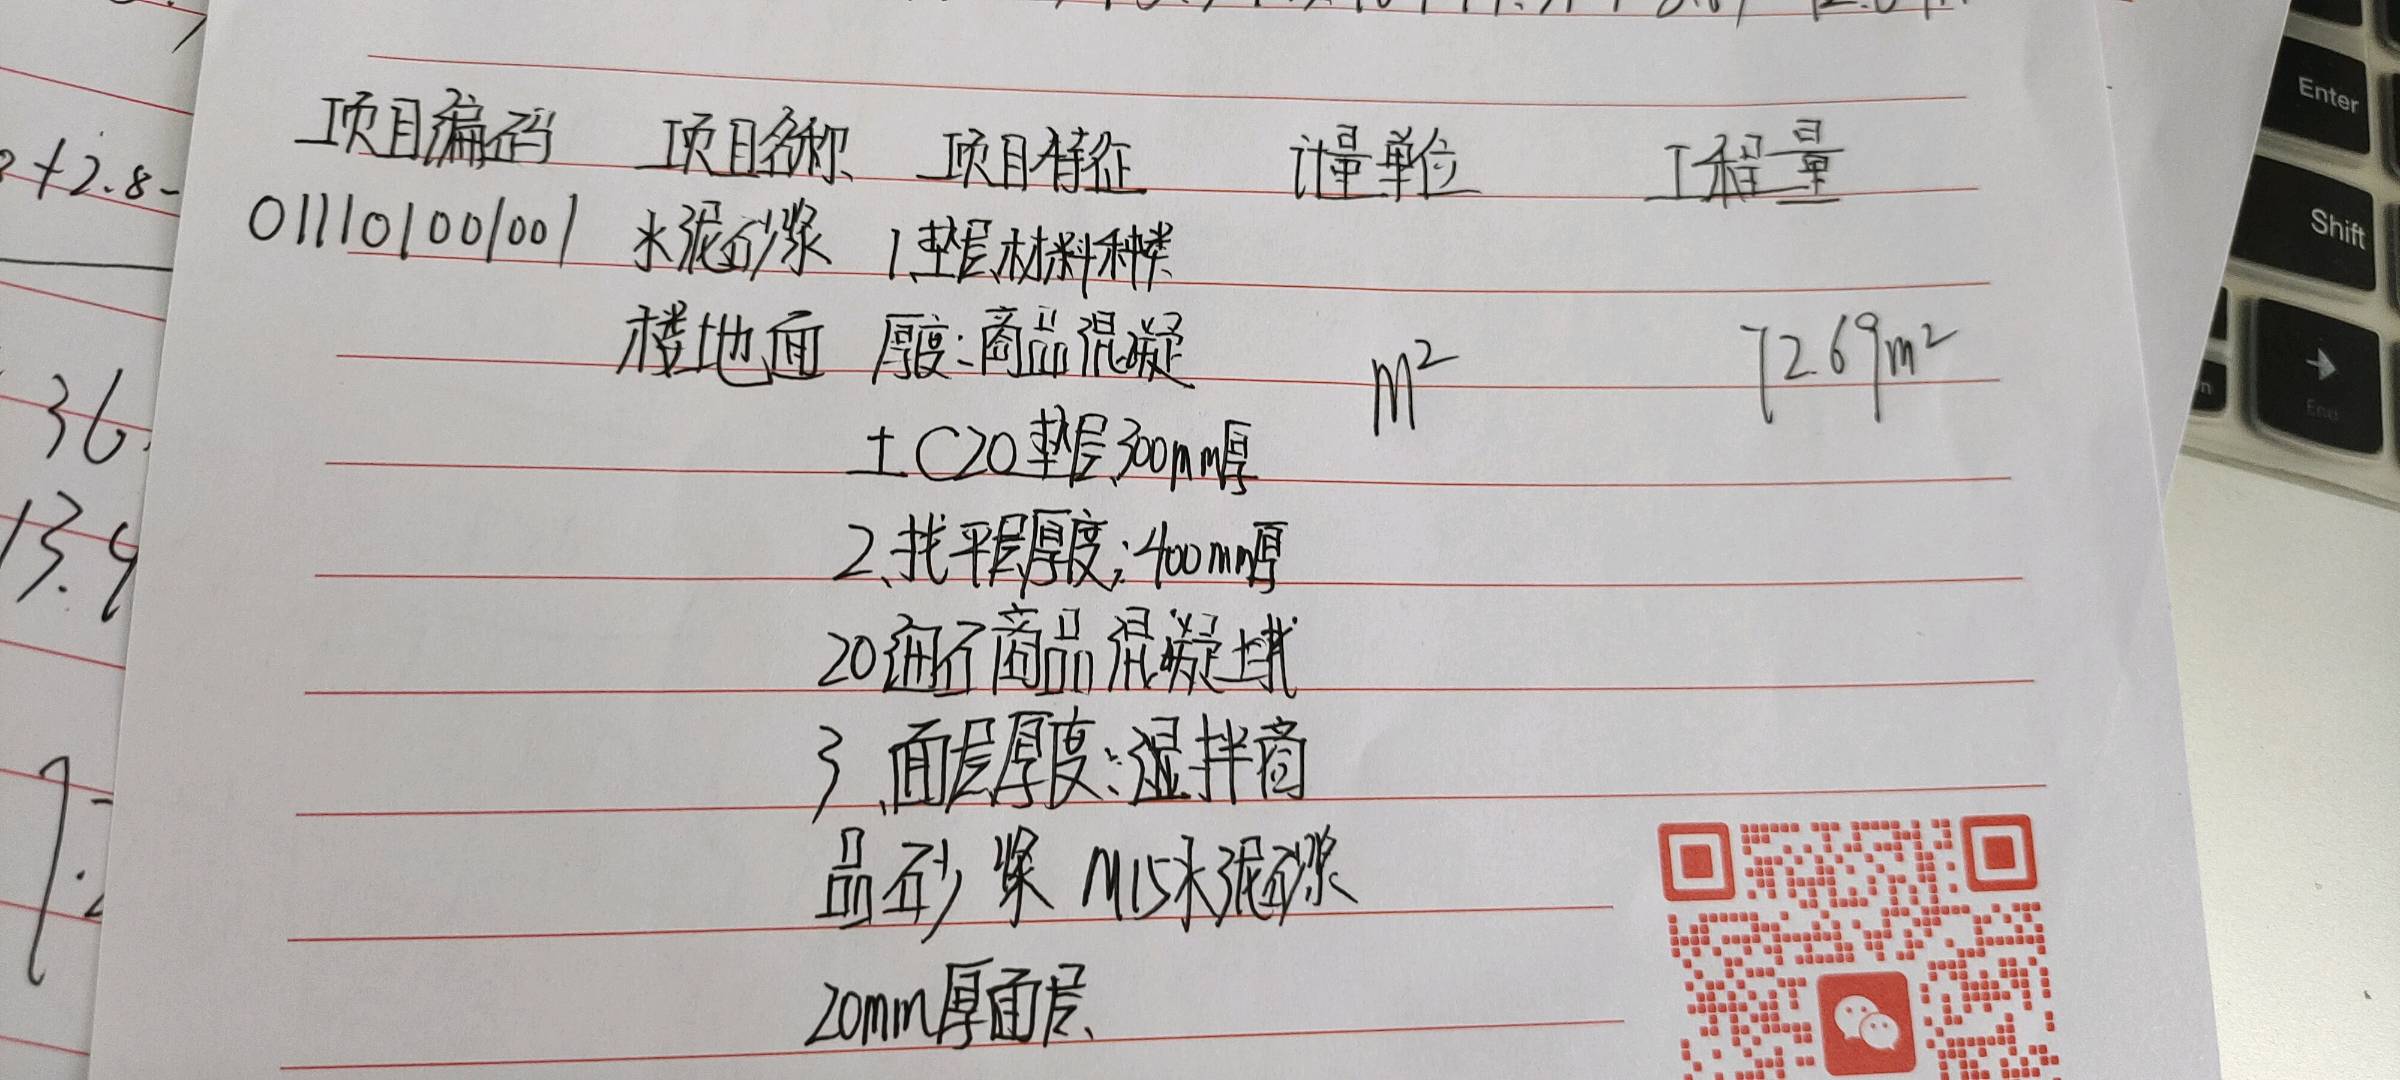 项目编码 项目名称 项目特征 计量单位 工程量
011101001001 水泥砂浆 1、垫层材料种类
楼地面 厚度:商品混凝 m² 72.69m²
土C20垫层300mm厚
2、找平层厚度:400mm厚
20 商品混凝土找
3、面层厚度:湿拌商
品砂浆 M15水泥砂浆
20mm厚面层
+2.8-
36.
13.9
7.2
Enter
Shift
End